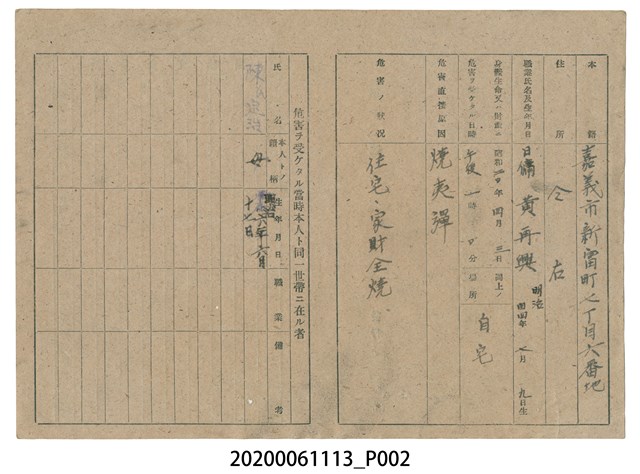 本籍 嘉義市新富町七丁目六番地
住所 仝右
職業氏名及生年月日 日傭 黃再興 明治四四年 七月 九日生
身體生命又ハ財產ニ危害ヲ受ケタル日時 昭和二〇年四月三日 午後一時 分 同上ノ場所 自宅
危害直接原因 燒夷彈
危害ノ狀況 住宅、家財全燒
危害ヲ受ケタル當時本人ト同一世帶ニ在ル者
氏名 本人トノ續柄 生年月日 職業 備考
陳 母 明治 六年六月十七日
20200061113_P002